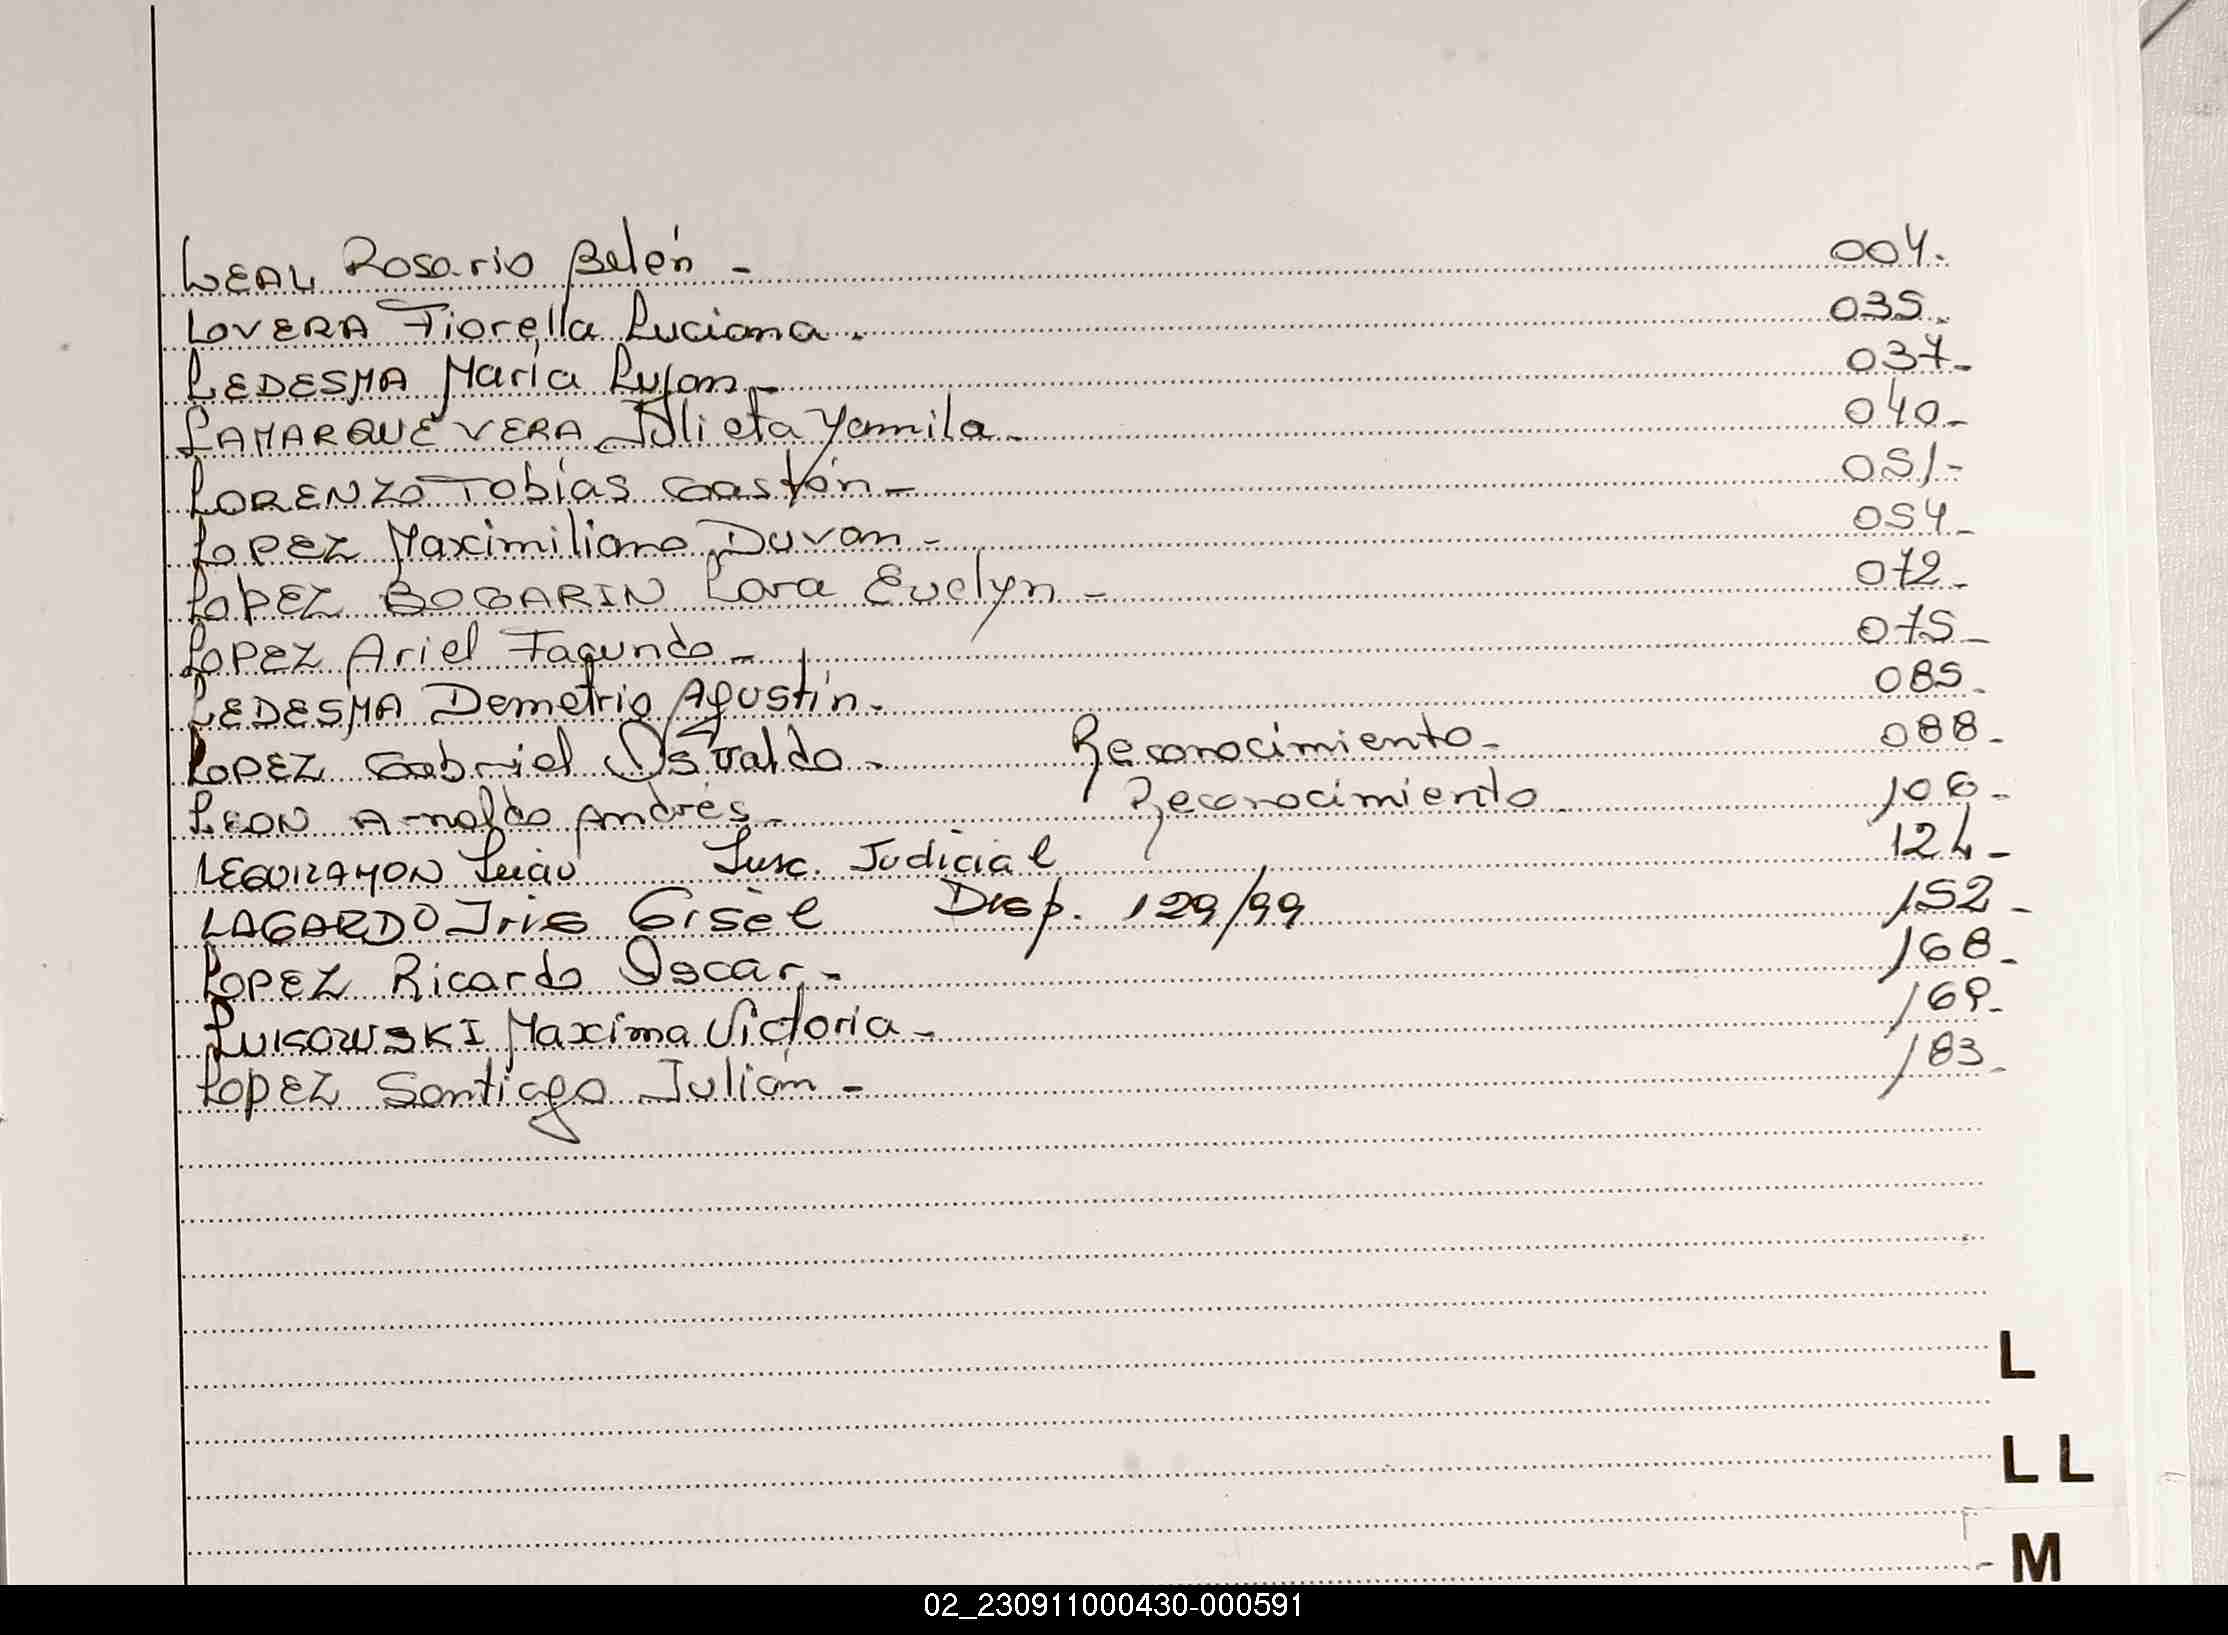 LEAL Rosario Belén - 004.
LOVERA Fiorella Luciana. 035.
LEDESMA María Lujan - 037-
LAMARQUE VERA Julieta Yamila - 040-
LORENZO Tobías Gastón - 051-
LOPEZ Maximiliano Duvan - 054-
LOPEZ BOGARIN Lara Evelyn - 072-
LOPEZ Ariel Facundo - 075-
LEDESMA Demetrio Agustín. 085-
LOPEZ Gabriel Osvaldo - Reconocimiento - 088-
LEON Arnaldo Andrés - Reconocimiento 106-
LEGUIZAMON Susc. Judicial 124-
LAGARDO Iris Gisèl Disp. 129/99 152-
LOPEZ Ricardo Oscar - 168-
Maxima Victoria - 169-
LOPEZ Santiago Julián - 183-
L
LL
M
02_230911000430-000591